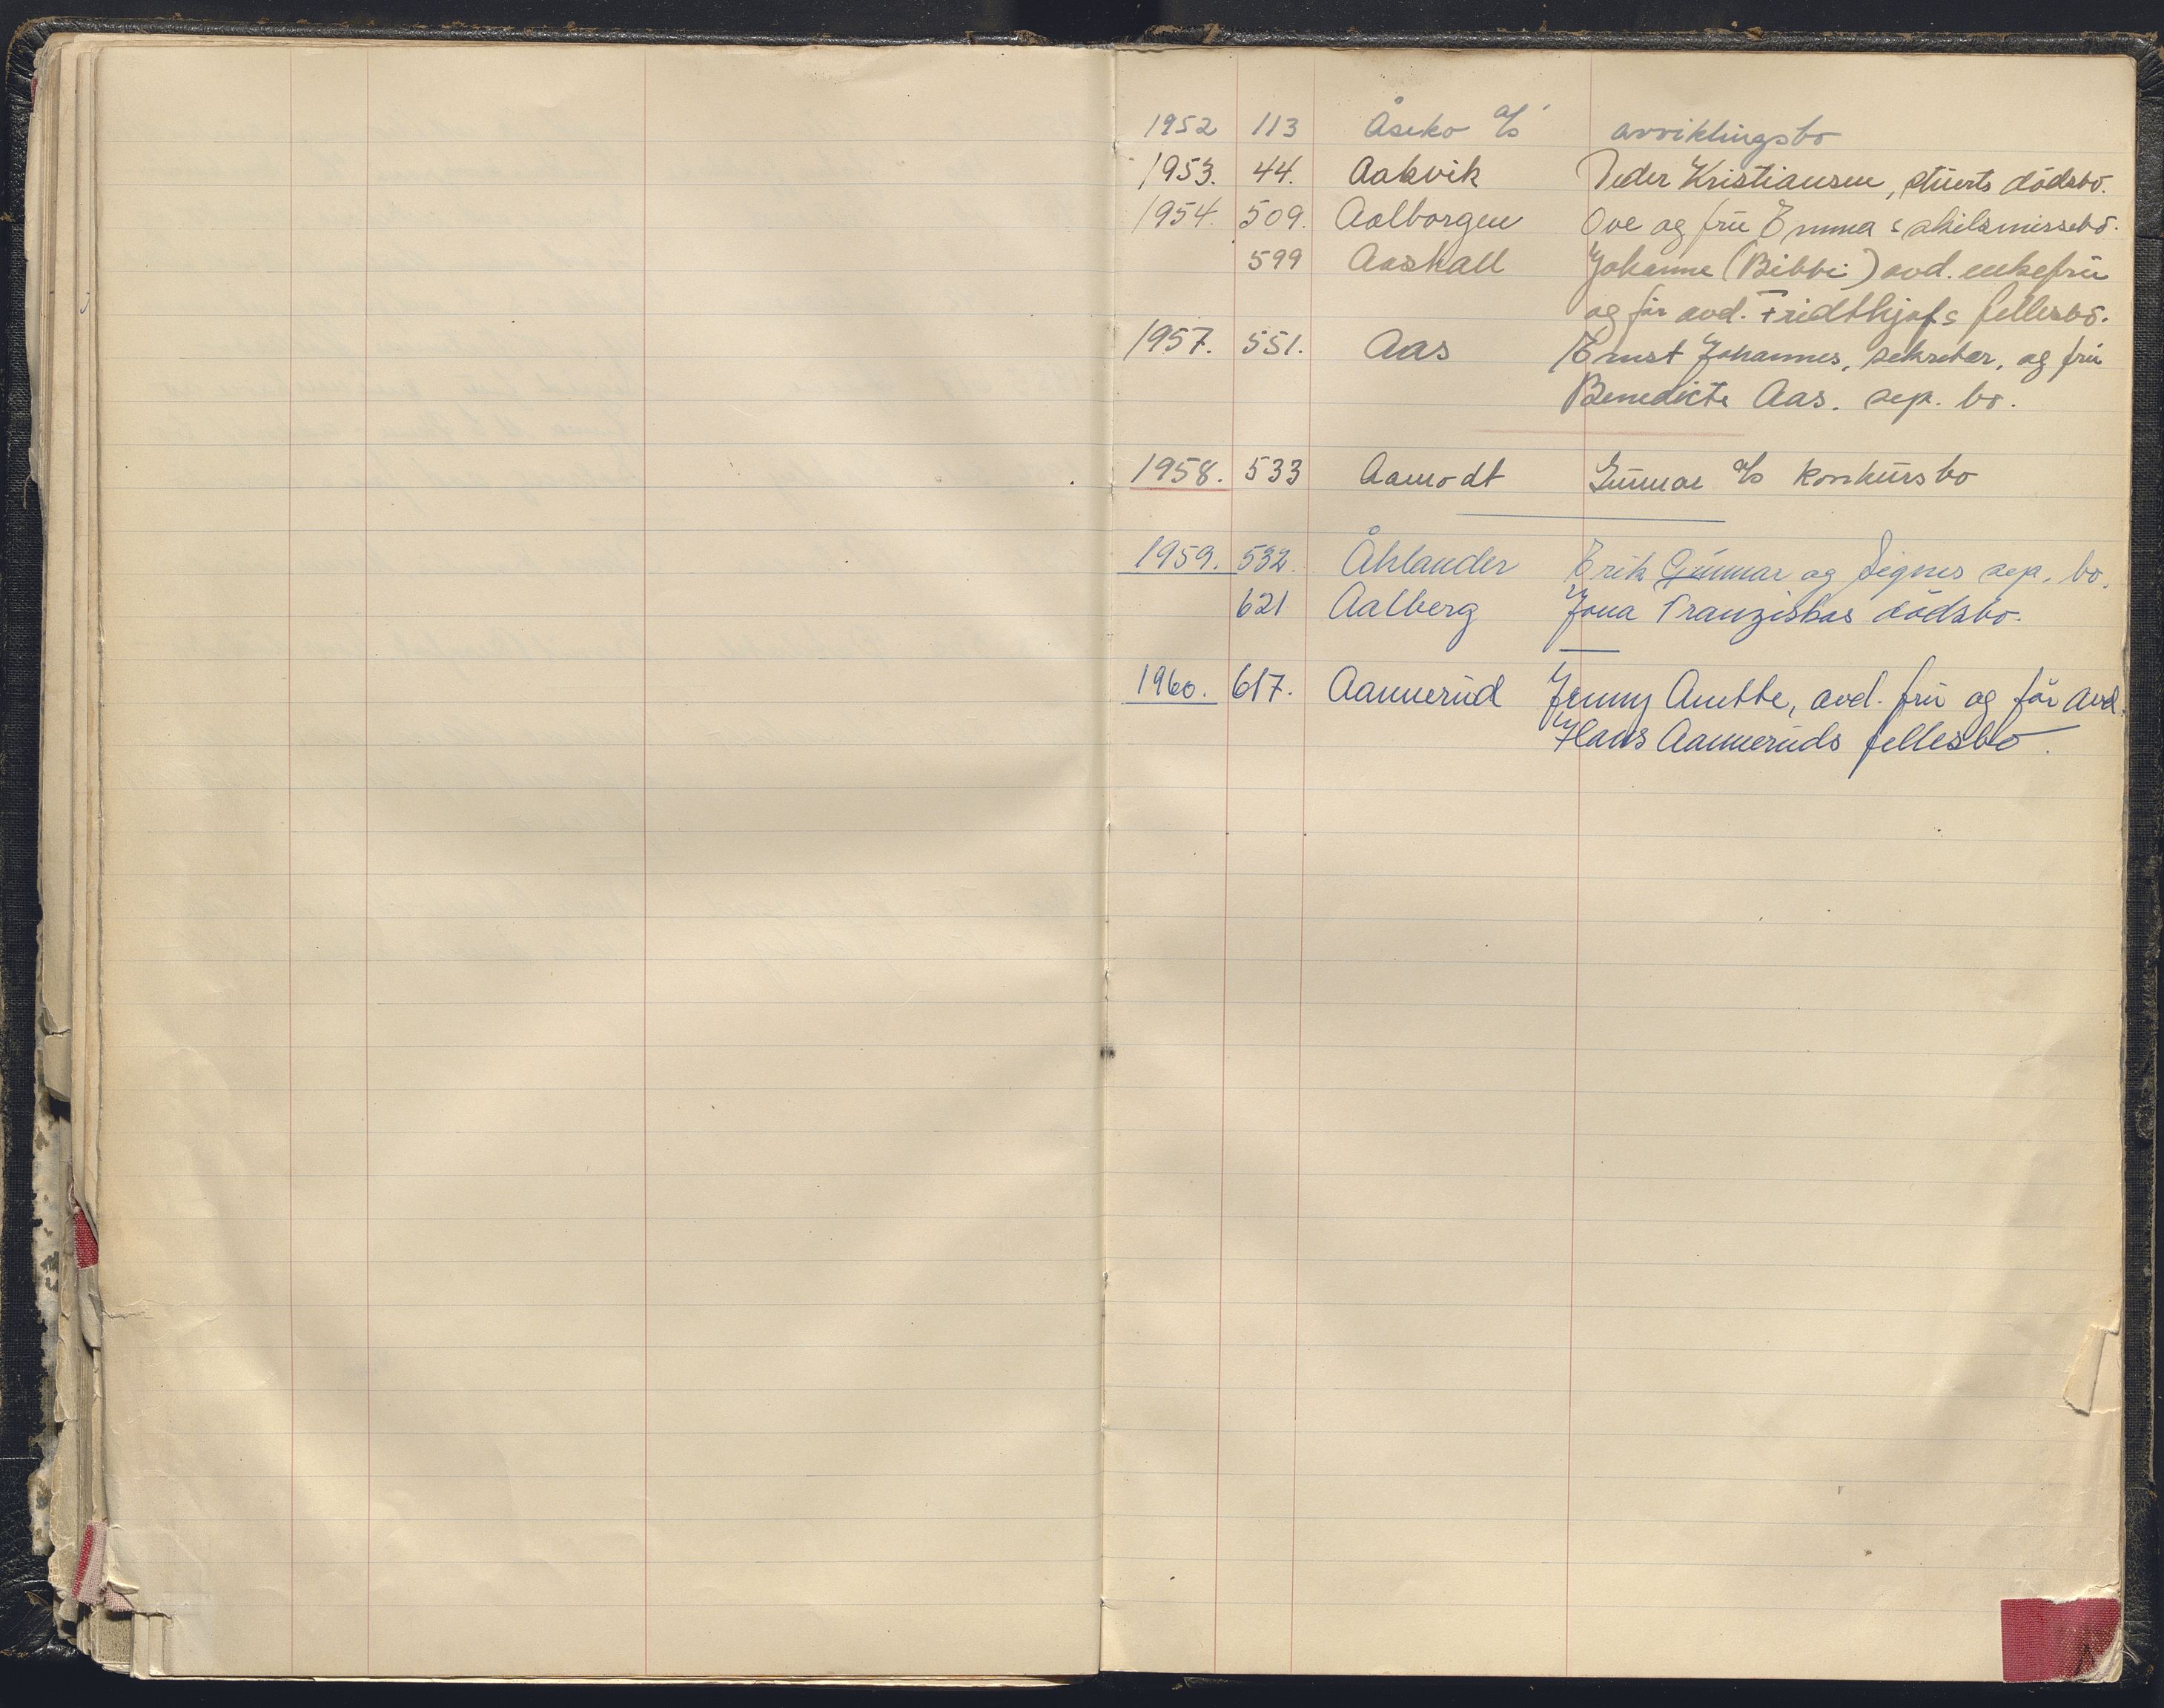 1952 113 Åseko a/s avviklingsbo
1953. 44. Aakvik Peder Kristiansen, stuerts dödsbo.
1954. 509. Aalborgen Ove og fru Emma s skilsmissebo.
599 Aashall Johanne (Bibbi) avd. enkefru
og før avd. Fridthjofs fellesbo.
1957. 551. Aas Ernst Johannes, sekretær, og fru
Benedicte Aas. sep. bo.
1958. 533 Aamodt Gunnar a/s konkursbo
1959. 532. Åhlander Erik Gunnar og Signes sep. bo.
621 Aalberg Jona Franziskas dödsbo.
1960. 617. Aannerud Jenny Anette, avd. fru og før avd.
Hans Aanneruds fellesbo.